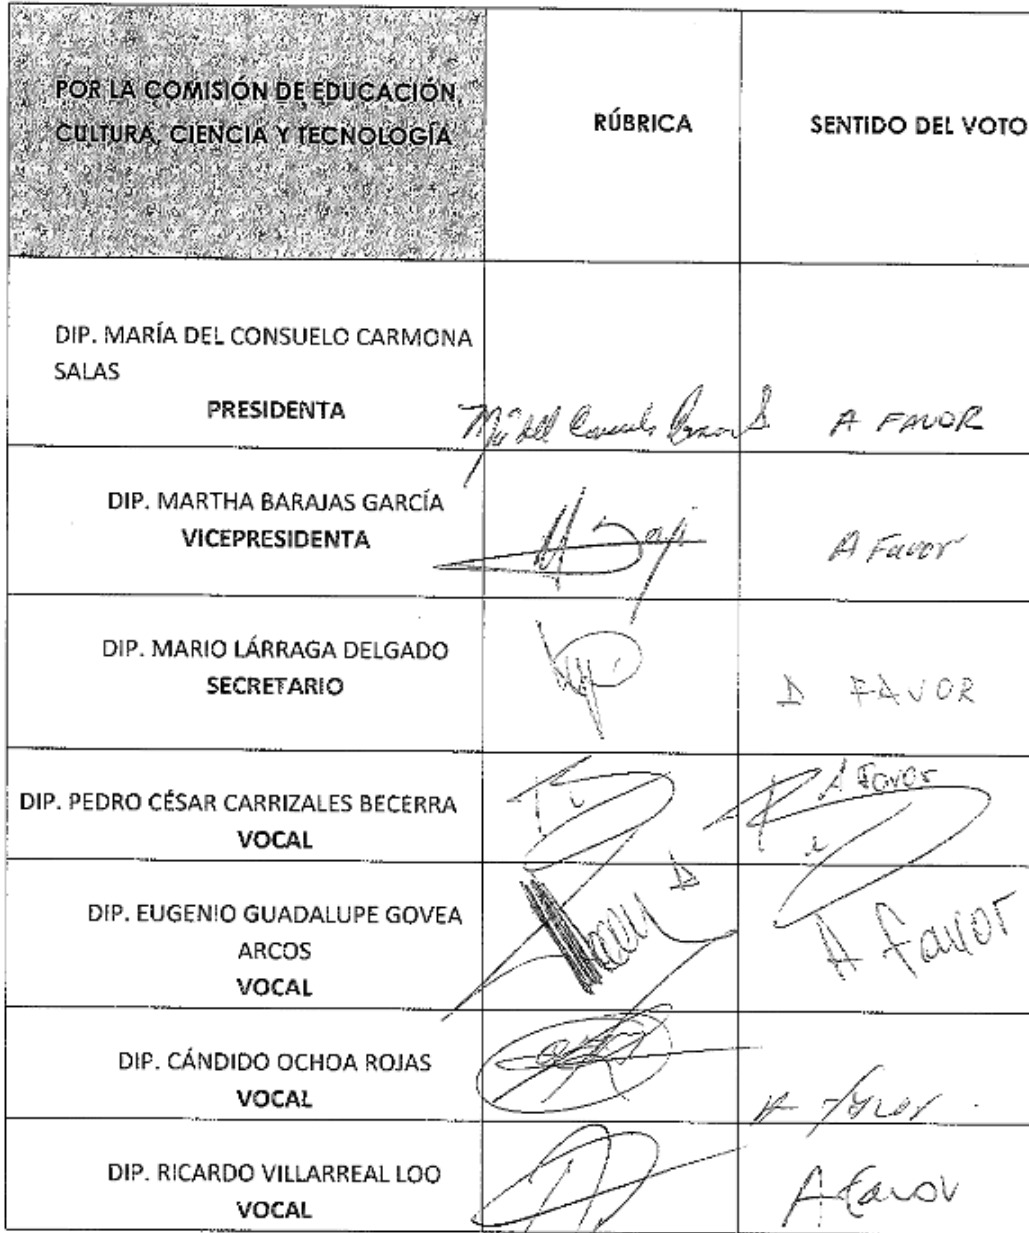 POR LA COMISIÓN DE EDUCACIÓN
CULTURA, CIENCIA Y TECNOLOGÍA
RÚBRICA
SENTIDO DEL VOTO
DIP. MARÍA DEL CONSUELO CARMONA
SALAS
PRESIDENTA
A FAVOR
DIP. MARTHA BARAJAS GARCÍA
VICEPRESIDENTA
A Favor
DIP. MARIO LÁRRAGA DELGADO
SECRETARIO
A FAVOR
DIP. PEDRO CÉSAR CARRIZALES BECERRA
VOCAL
A Favor
DIP. EUGENIO GUADALUPE GOVEA
ARCOS
VOCAL
A favor
DIP. CÁNDIDO OCHOA ROJAS
VOCAL
A favor
DIP. RICARDO VILLARREAL LOO
VOCAL
A favor